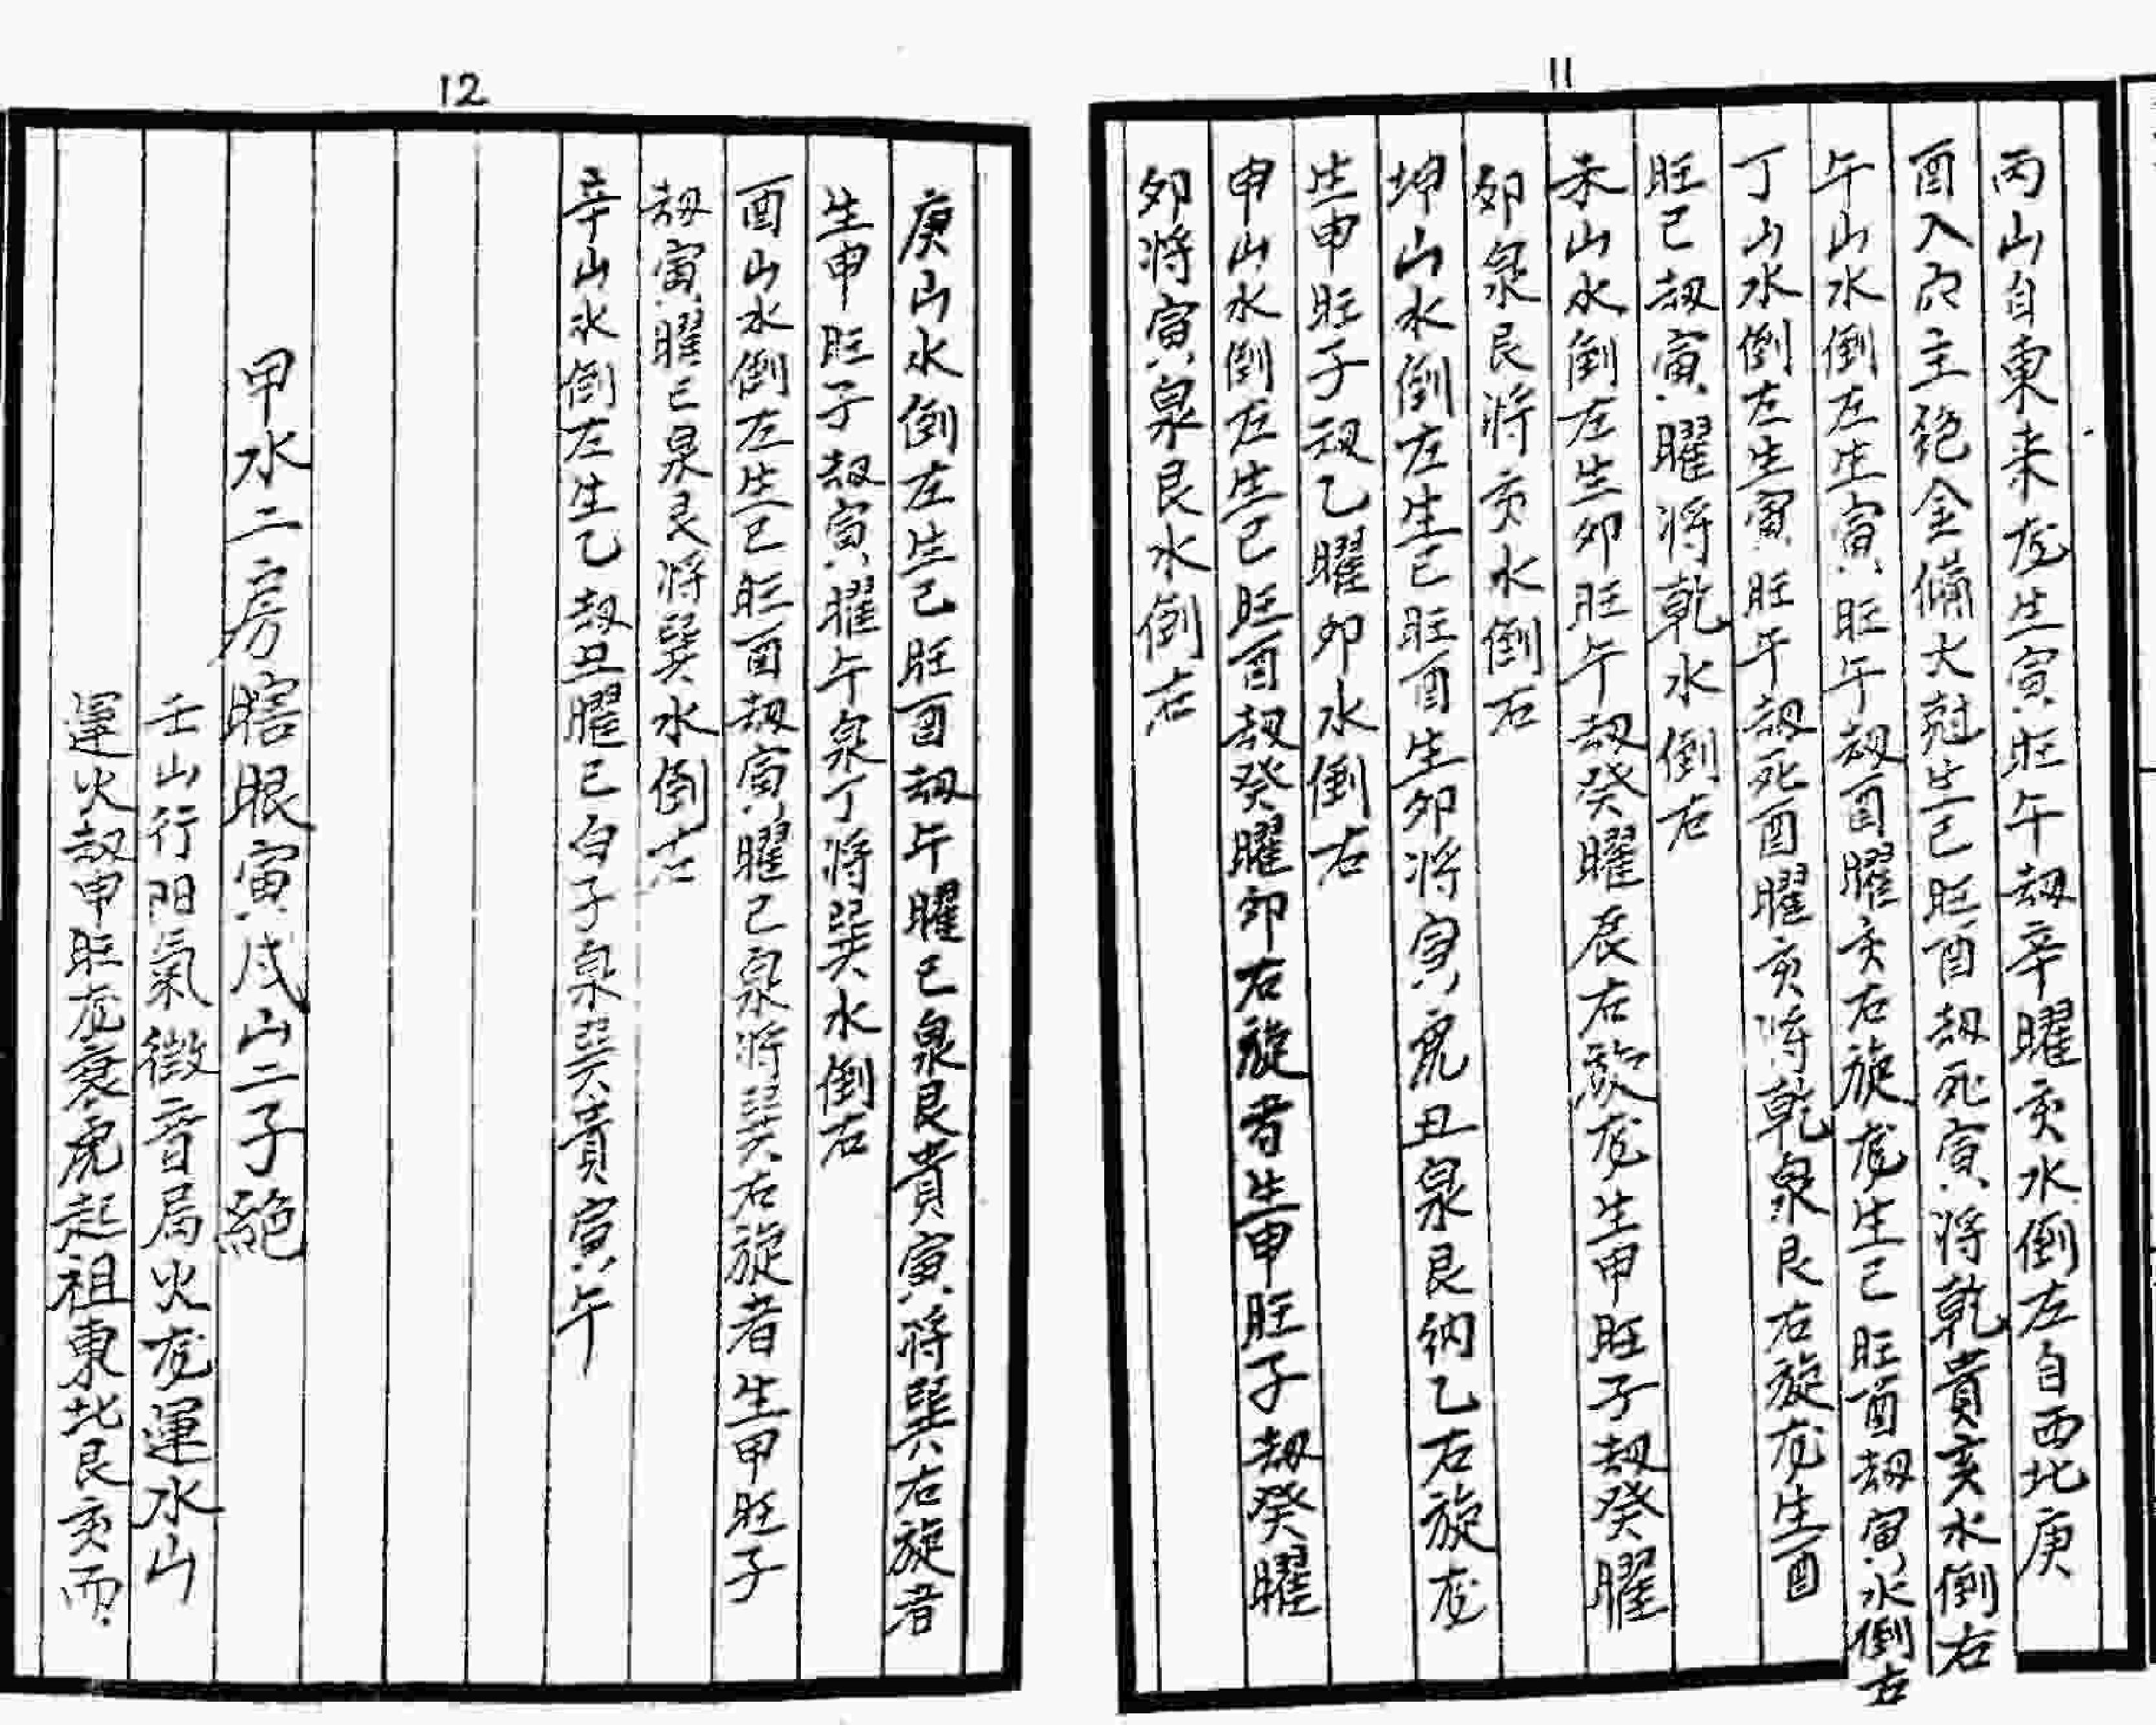 11
丙山自東来龙生寅旺午刼辛曜亥水倒左自西北庚
酉入穴主絶金備火尅生巳旺酉刼死寅将乾貴亥水倒右
午山水倒左生寅旺午刼酉曜亥右旋龙生巳旺酉刼寅水倒右
丁山水倒左生寅旺午刼死酉曜亥将乾泉艮右旋龙生酉
旺巳刼寅曜将乾水倒右
未山水倒左生卯旺午刼癸曜辰右旋龙生申旺子刼癸曜
卯泉艮将亥水倒右
坤山水倒左生巳旺酉生卯将寅虎丑泉艮纳乙右旋龙
生申旺子刼乙曜卯水倒右
申山水倒左生巳旺酉刼癸曜卯右旋者生申旺子刼癸曜
卯将寅泉艮水倒右
12
庚山水倒左生巳旺酉刼午曜巳泉艮貴寅将巽右旋者
生申旺子刼寅曜午泉丁将巽水倒右
酉山水倒左生巳旺酉刼寅曜巳泉将巽右旋者生甲旺子
刼寅曜巳泉艮将巽水倒右
辛山水倒左生乙刼丑曜巳白子泉巽貴寅午
甲水二房瞎眼寅戌山二子絕
壬山行阳氣徵音局火龙運水山
運火刼申旺龙衰虎起祖東北艮亥而